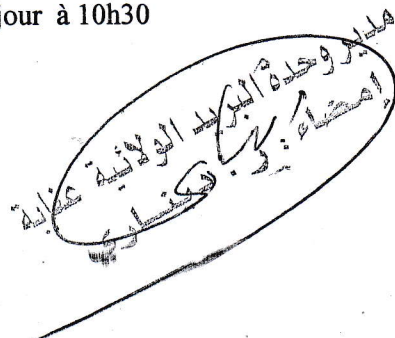 jour à 10h30
مدير وحدة البريد الولائية عنابة
إمضاء: